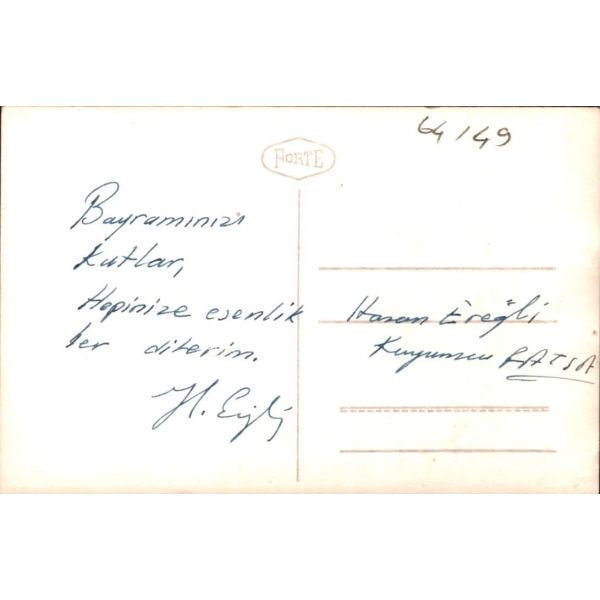 64/149
PORTE
Bayramınızı
Kutlar,
Hepinize esenlik
ler dilerim.
H. Ereğli
Hasan Ereğli
Kuyumcu FATSA